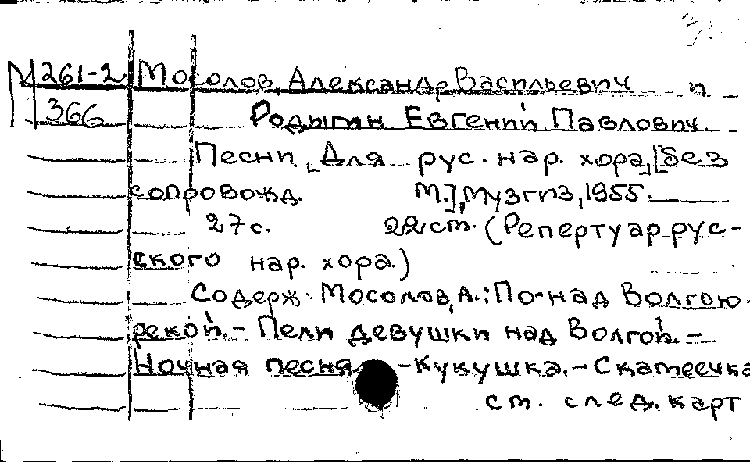 М261-2 Мосолов, Александр Васильевич и
366 Родыгин Евгений Павлович.
Песни [Для рус. нар. хора, [без
сопровожд. М.], Музгиз, 1955.
27с. 22ст. (Репертуар рус-
ского нар. хора.)
Содерж: Мосолов, А.: По-над Волгою-
рекой. - Пели девушки над Волгой. -
Ночная песня. - Кукушка. - Скатеечка
ст. след. карт